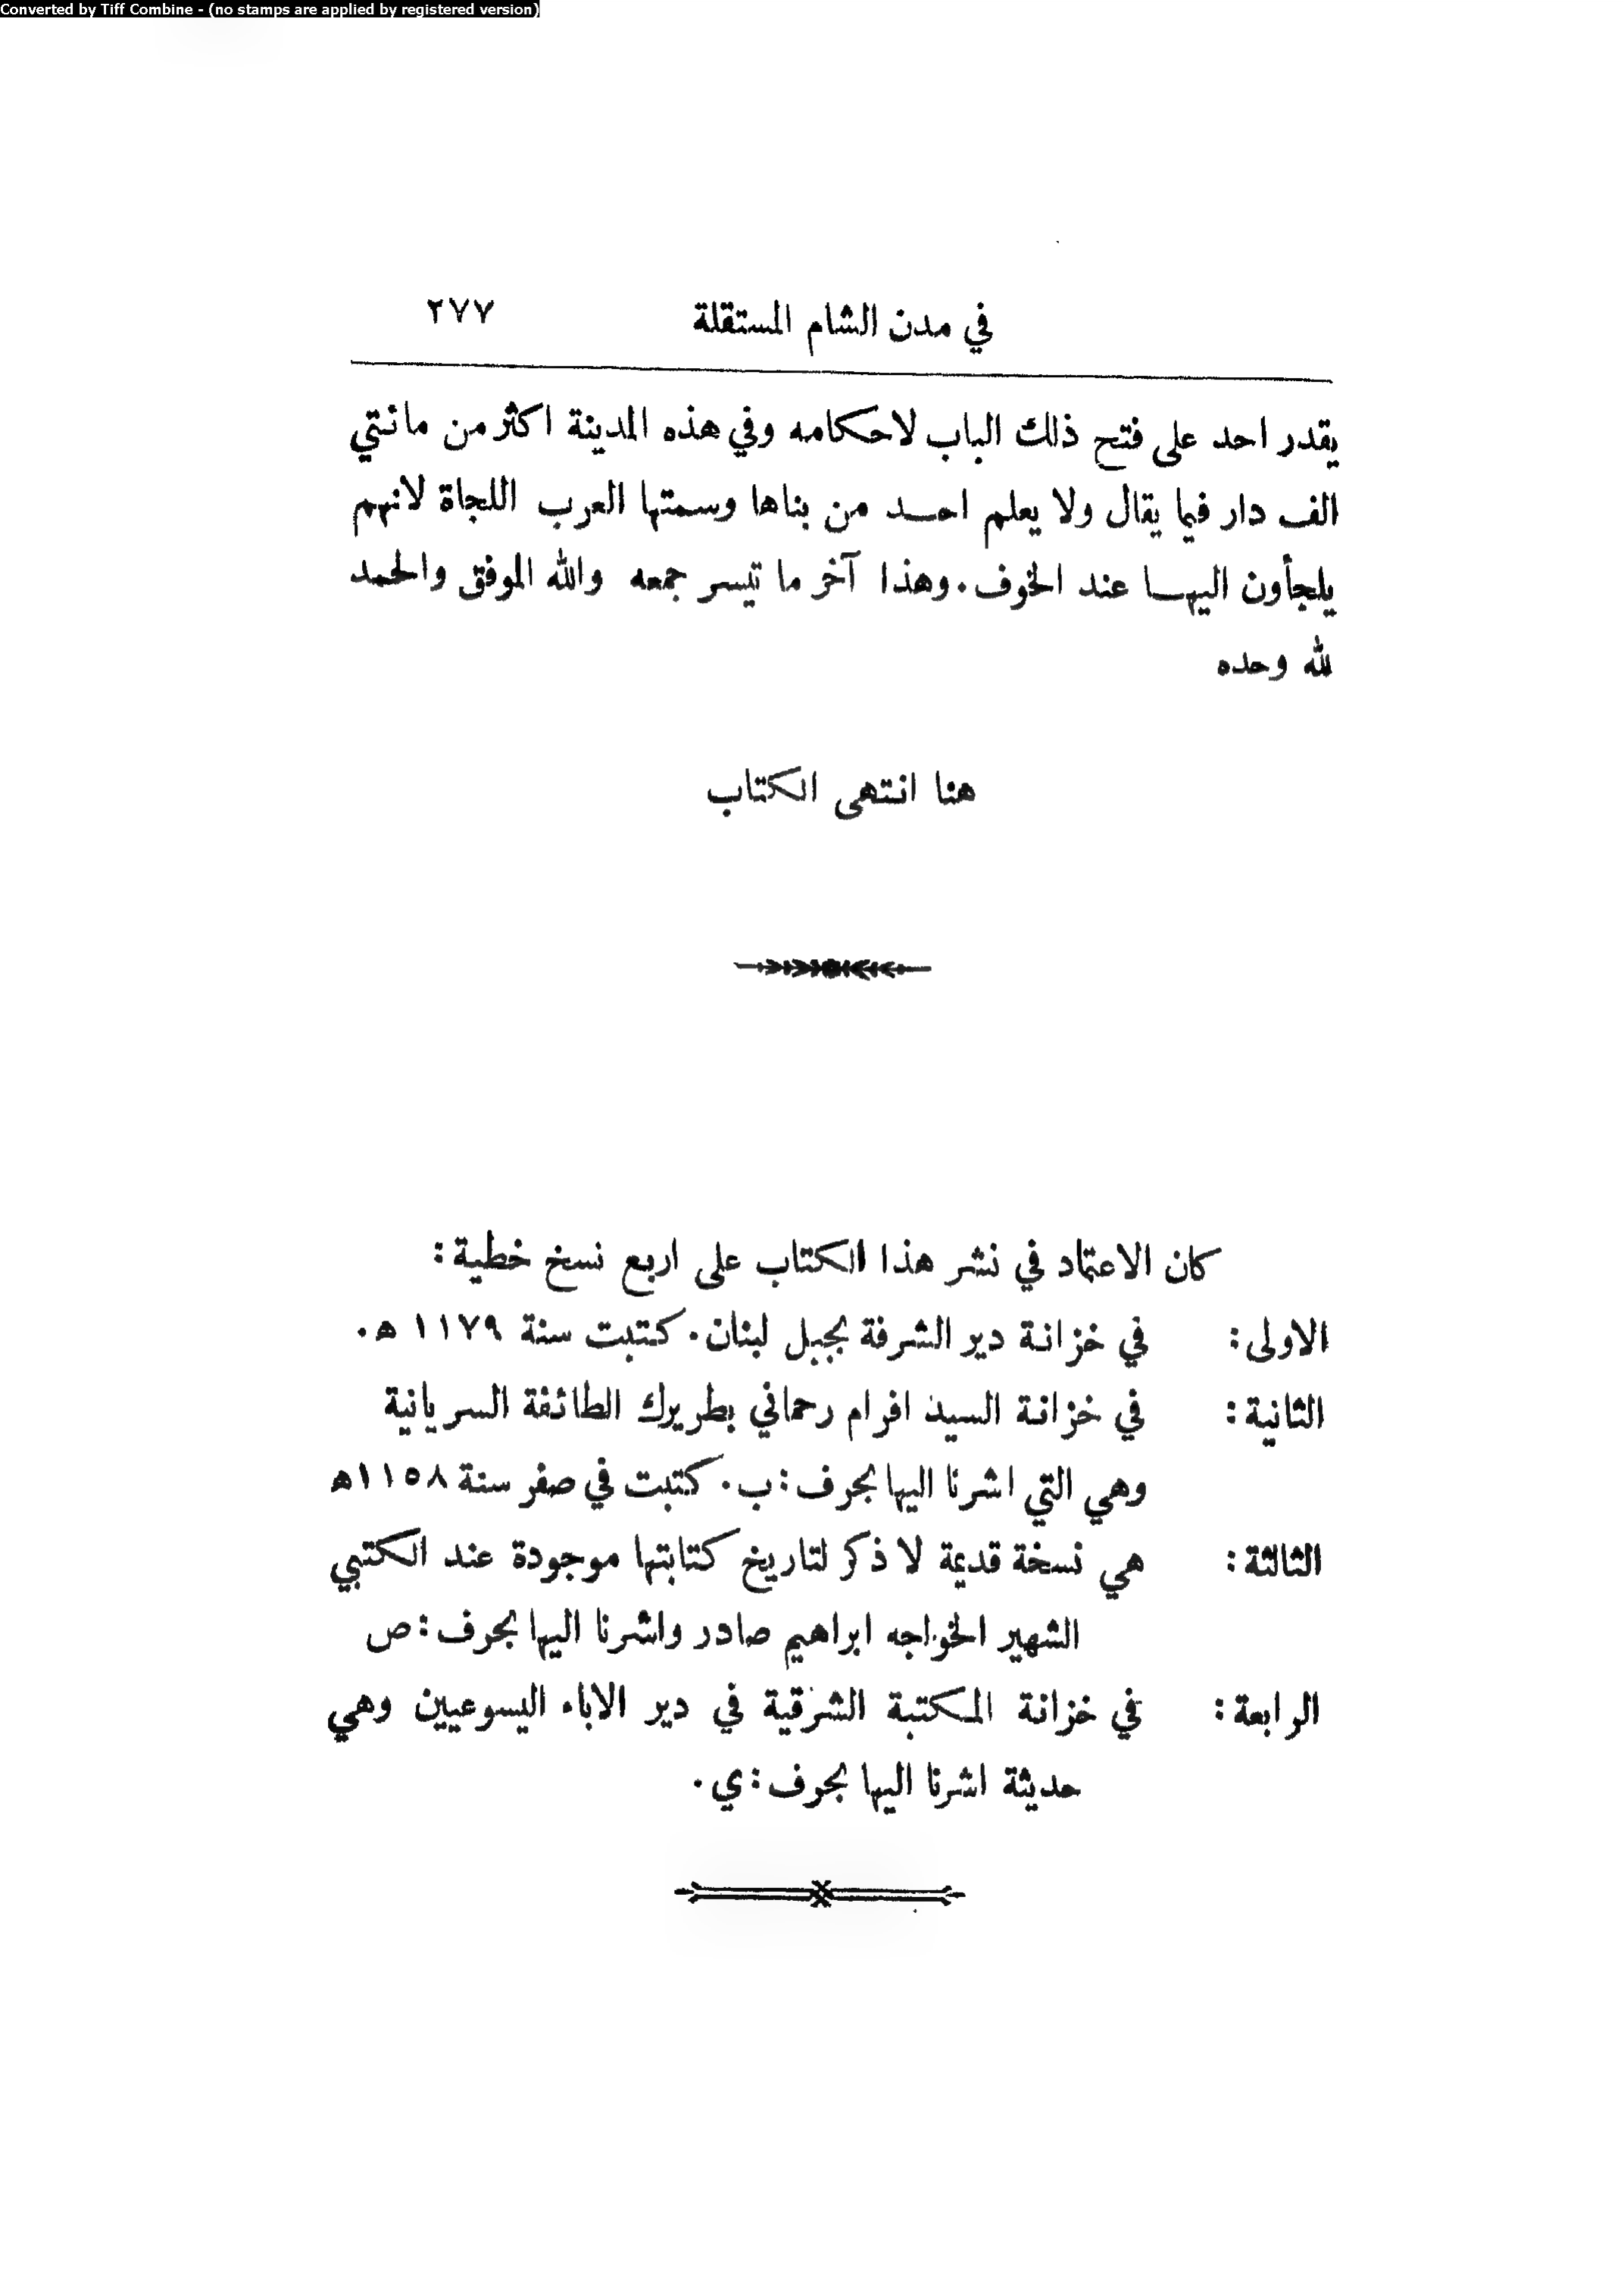 Converted by Tiff Combine - (no stamps are applied by registered version)
في مدن الشام المستقلة ٢٧٧
يقدر احد على فتح ذلك الباب لاحكامه وفي هذه المدينة اكثر من مائتي
الف دار فيما يقال ولا يعلم احد من بناها وسمتها العرب اللجاة لانهم
يلجأون اليها عند الخوف. وهذا آخر ما تيسر جمعه والله الموفق والحمد
لله وحده
هنا انتهى الكتاب
كان الاعتماد في نشر هذا الكتاب على اربع نسخ خطية:
الاولى: في خزانة دير الشرفة بجبل لبنان. كتبت سنة ١١٧٩ هـ.
الثانية: في خزانة السيد افرام رحماني بطريرك الطائفة السريانية
وهي التي اشرنا اليها بحرف: ب. كتبت في صفر سنة ١١٥٨ هـ
الثالثة: هي نسخة قديمة لا ذكر لتاريخ كتابتها موجودة عند الكتبي
الشهير الخواجه ابراهيم صادر واشرنا اليها بحرف: ص
الرابعة: في خزانة المكتبة الشرقية في دير الاباء اليسوعيين وهي
حديثة اشرنا اليها بحرف: ي.